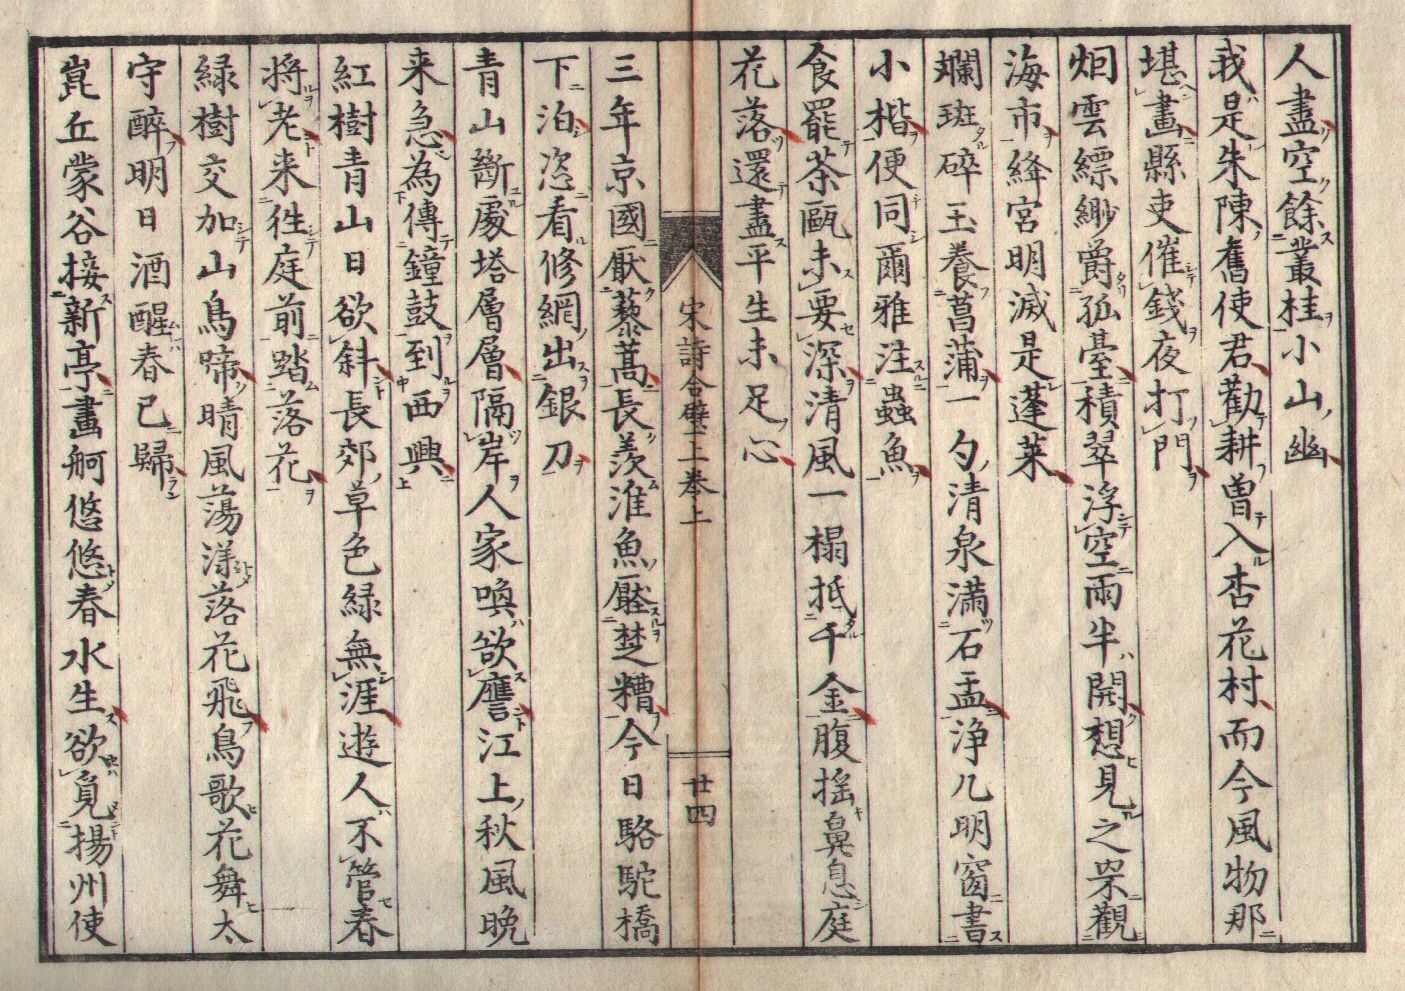 人盡空餘叢桂小山幽
我是朱陳舊使君勸耕曽入杏花村而今風物那
堪畫縣吏催錢夜打門
炯雲縹緲爵孤臺積翠浮空雨半開想見之罘觀
海市絳宮明滅是蓬萊
斕斑碎玉養菖蒲一勺清泉滿石盂浄几明窗書
小楷便同爾雅注蟲魚
食罷茶甌未要深清風一榻抵千金腹揺鼻息庭
花落還盡平生未足心
宋詩合璧二巻上
廿四
三年京國厭藜蒿長羨淮魚壓楚糟今日駱駝橋
下泊恣看修網出銀刀
青山斷處塔層層隔岸人家喚欲譍江上秋風晩
来急為傳鐘鼓到西興
紅樹青山日欲斜長郊草色緑無涯遊人不管春
將老来徃庭前踏落花
緑樹交加山鳥啼晴風蕩漾落花飛鳥歌花舞太
守醉明日酒醒春已歸
崑丘蒙谷接新亭畫舸悠悠春水生欲覓揚州使